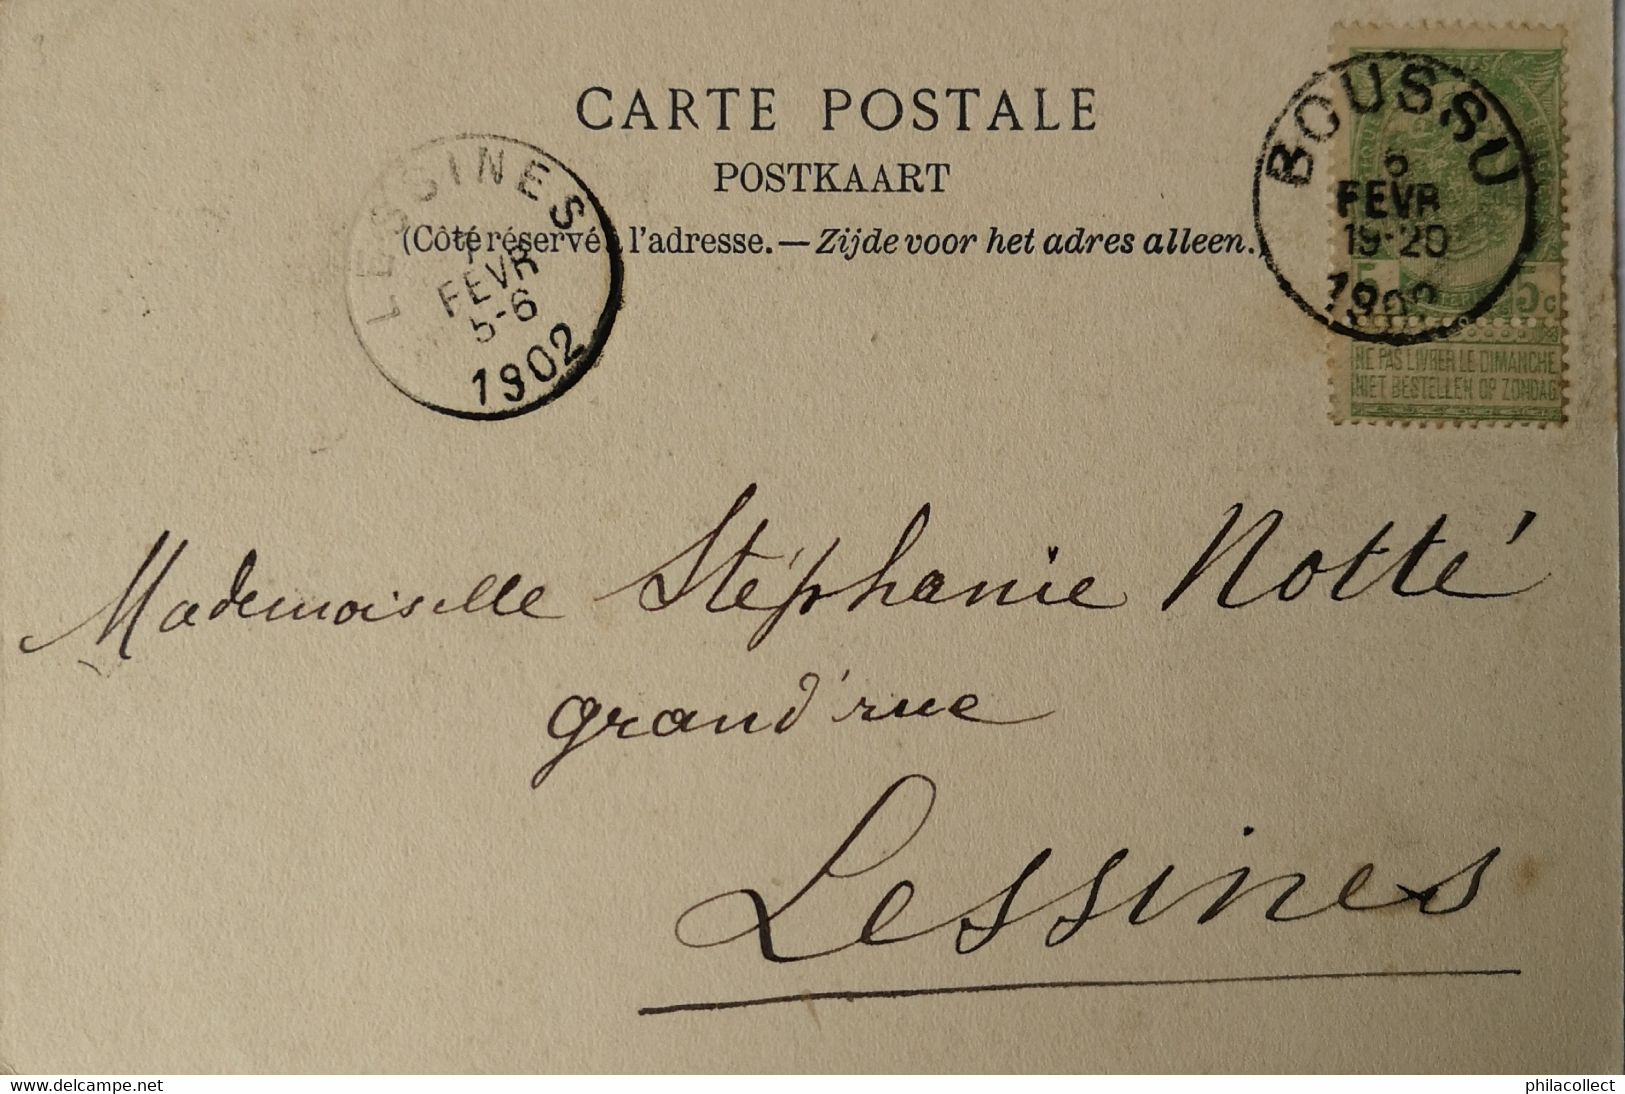 CARTE POSTALE
POSTKAART
(Côté réservé à l'adresse. — Zijde voor het adres alleen.)
LESSINES
7
FEVR
5-6
1902
BOUSSU
6
FEVR
19-20
1902
5 5c
NE PAS LIVRER LE DIMANCHE
NIET BESTELLEN OP ZONDAG
Mademoiselle Stéphanie Notté
grand'rue
Lessines
www.delcampe.net
philacollect